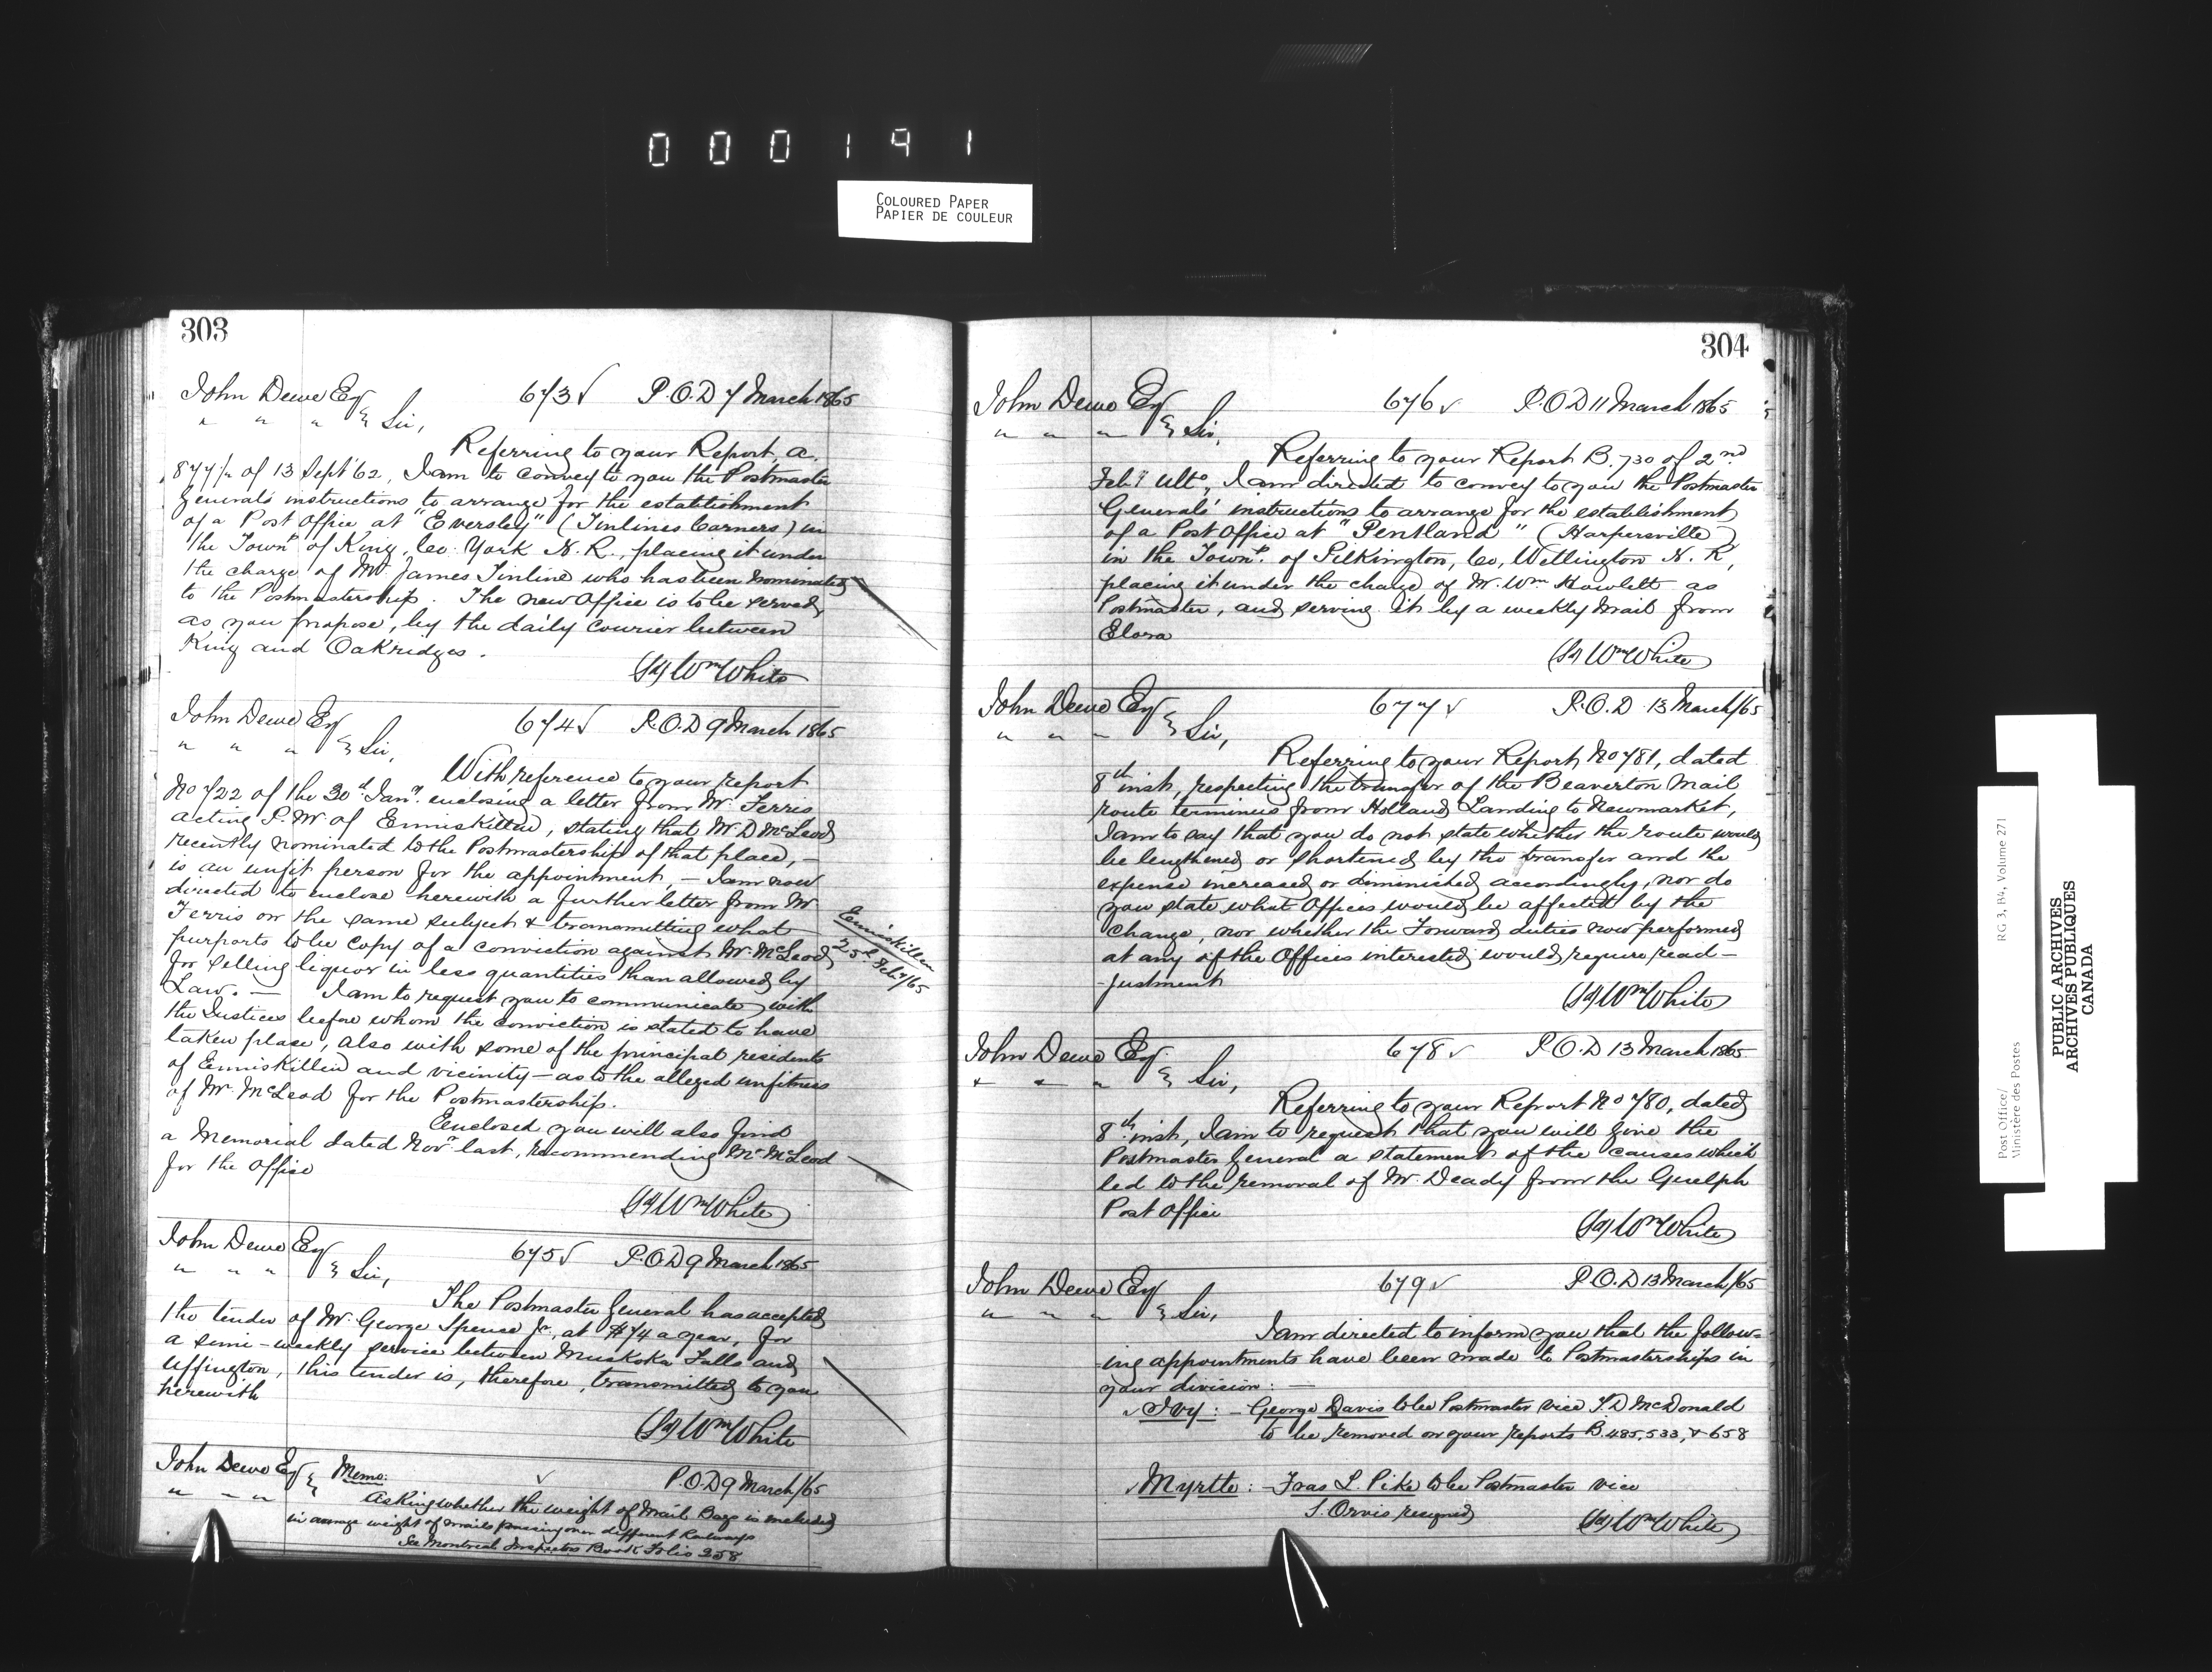 000191
COLOURED PAPER
PAPIER DE COULEUR
303
John Dewe Esq 673√ P.O.D 7 March 1865
" " " Sir,
Referring to your Report, A.
877/12 of 13 Sept '62, I am to convey to you the Postmaster
General's instructions to arrange for the establishment
of a Post Office at "Eversley" (Tinlines Corners) in
the Townp of King, Co. York N.R., placing it under
the charge of Mr James Tinline who has been nominated
to the Postmastership. The new Office is to be served,
as you propose, by the daily courier between
King and Oakridges.
(Sd) Wm White
John Dewe Esq 674√ P.O.D 9 March 1865
" " " Sir,
With reference to your report
No 722 of the 30th Jany. enclosing a letter from Mr. Ferris
acting P.M. of Enniskillen, stating that Mr. D McLeod
recently nominated to the Postmastership of that place, –
is an unfit person for the appointment, – I am now
directed to enclose herewith a further letter from Mr
Ferris on the same subject & transmitting what
purports to be copy of a conviction against Mr. McLeod
for selling liquor in less quantities than allowed by
Law. — I am to request you to communicate with
the Justices before whom the conviction is stated to have
taken place, also with some of the principal residents
of Enniskillen and vicinity – as to the alleged unfitness
of Mr. McLeod for the Postmastership.
Enclosed you will also find
a Memorial dated Novr last, recommending Mr McLeod
for the Office
(Sd) Wm White
Enniskillen
25th Feby/65
John Dewe Esq 675√ P.O.D 9 March 1865
" " " Sir,
The Postmaster General has accepted
the tender of Mr. George Spence Jr., at $74 a year, for
a semi-weekly service between Muskoka Falls and
Uffington, this tender is, therefore, transmitted to you
herewith
(Sd) Wm White
John Dewe Esq Memo: √ P.O.D 9 March/65
" " " Asking whether the weight of Mail Bags is included
in average weight of mails passing over different Railways
See Montreal Inspectors Book Folio 258
304
John Dewe Esq 676√ P.O.D 11 March 1865
" " " Sir,
Referring to your Report B.730 of 2nd
Feby Ulto, I am directed to convey to you the Postmaster
General's instructions to arrange for the establishment
of a Post Office at "Pentland" (Harpersville)
in the Townp. of Pilkington, Co, Wellington N.R,
placing it under the charge of Mr. Wm Howlett as
Postmaster, and serving it by a weekly Mail from
Elora
(Sd) Wm White
John Dewe Esq 677√ P.O.D 13 March/65
" " " Sir,
Referring to your Report No 781, dated
8th inst, respecting the transfer of the Beaverton Mail
route terminus from Holland Landing to Newmarket,
I am to say that you do not state whether the route would
be lengthened or shortened by the transfer and the
expense increased or diminished accordingly, nor do
you state what Offices would be affected by the
change, nor whether the Forward duties now performed
at any of the Offices interested would require read-
-justment
(Sd) Wm White
John Dewe Esq. 678√ P.O.D 13 March 1865
" " " Sir,
Referring to your Report No 780, dated
8th inst, I am to request that you will give the
Postmaster General a statement of the causes which
led to the removal of Mr. Deady from the Guelph
Post Office
(Sd) Wm White
John Dewe Esq 679√ P.O.D 13 March/65
" " " Sir,
I am directed to inform you that the follow-
ing appointments have been made to Postmasterships in
your division: —
√Ivy: – George Davis to be Postmaster vice McDonald
to be removed on your reports B.485, 533, & 658
√Myrtle: – Fras L. Pike to be Postmaster vice
Orvis resigned (Sd) Wm White
Post Office/ RG 3, Volume 271
Ministère des Postes
PUBLIC ARCHIVES
ARCHIVES PUBLIQUES
CANADA